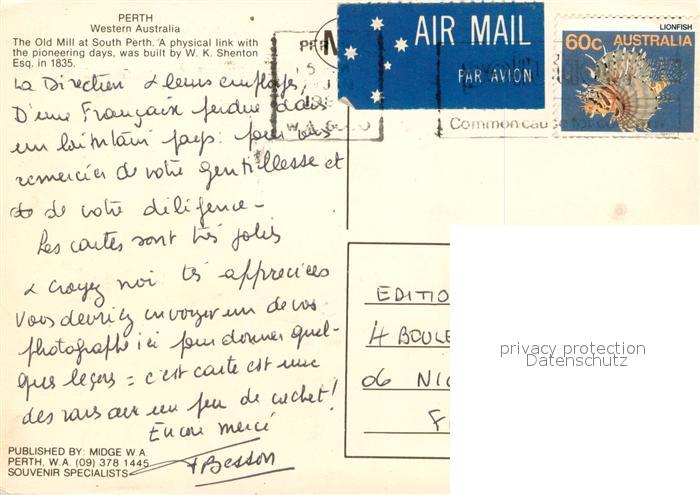 PERTH
Western Australia
The Old Mill at South Perth. 'A physical link with
the pioneering days, was built by W. K. Shenton
Esq. in 1835.
La Direction & leurs employés,
D'une Française perdue dans
un lointain pays: pour vous
remercier de votre gentillesse et
de votre diligence -
Les cartes sont très jolies
& croyez moi très appréciées
Vous devriez envoyer un de vos
photographe ici pour donner quel-
ques leçons = c'est carte est une
des rares avec un peu de cachet!
Encore merci
Besson
PUBLISHED BY: MIDGE W.A.
PERTH, W.A. (09) 378 1445
SOUVENIR SPECIALISTS
AIR MAIL
PAR AVION
LIONFISH
60c AUSTRALIA
Common cause
EDITIO
4 BOULE
06 NIC
F
privacy protection
Datenschutz